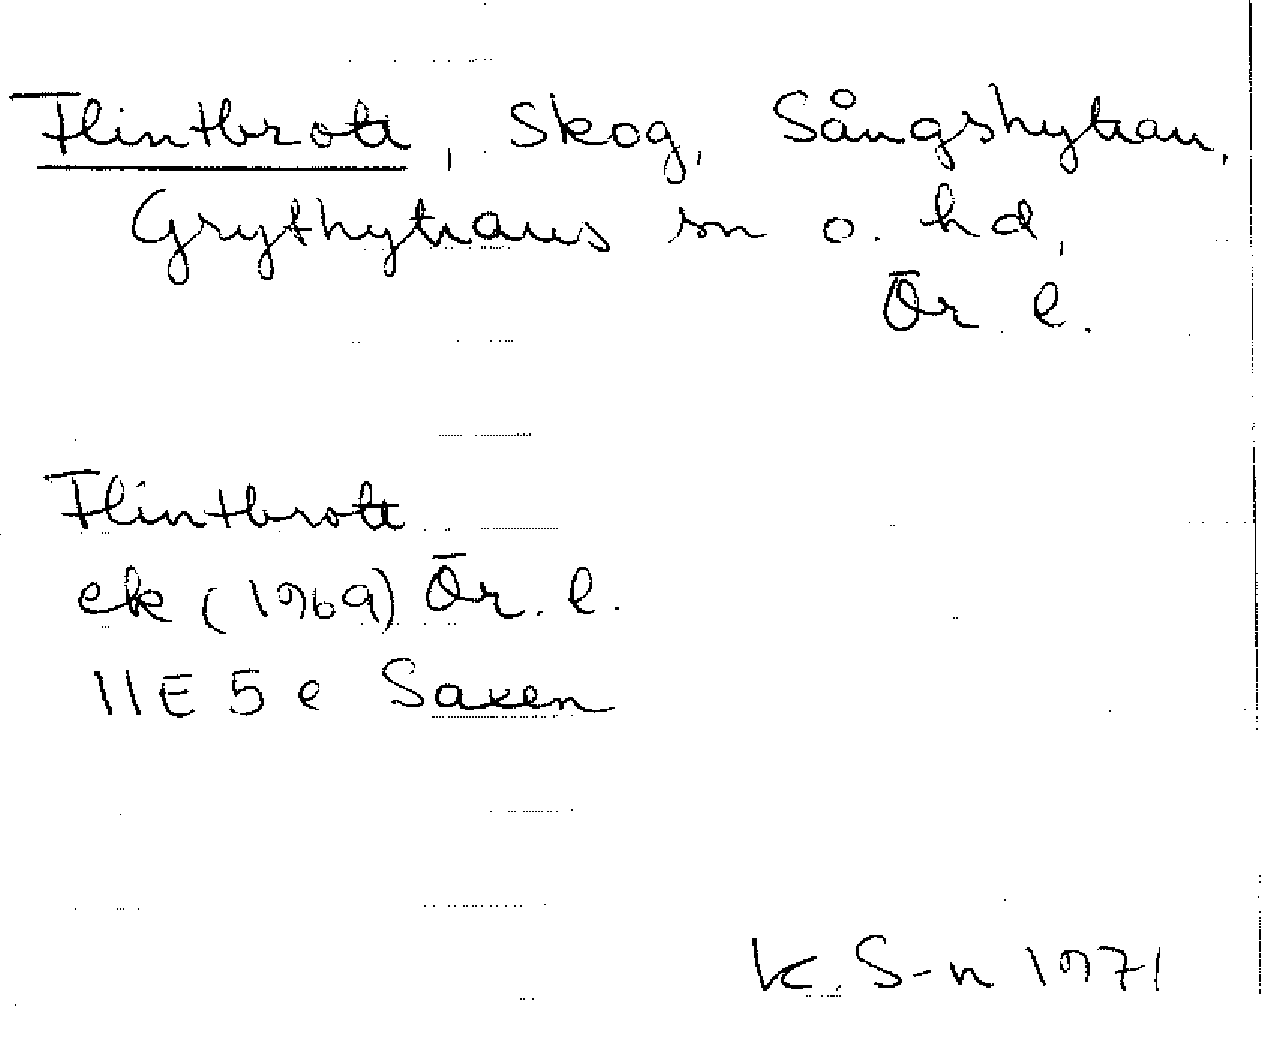 Flintbrott, Skog, Sångshyttan,
Grythyttans sn o. hd,
Ör. l.
Flintbrott
ek (1969) Ör. l.
11E 5e Saxen
K. S-n 1971